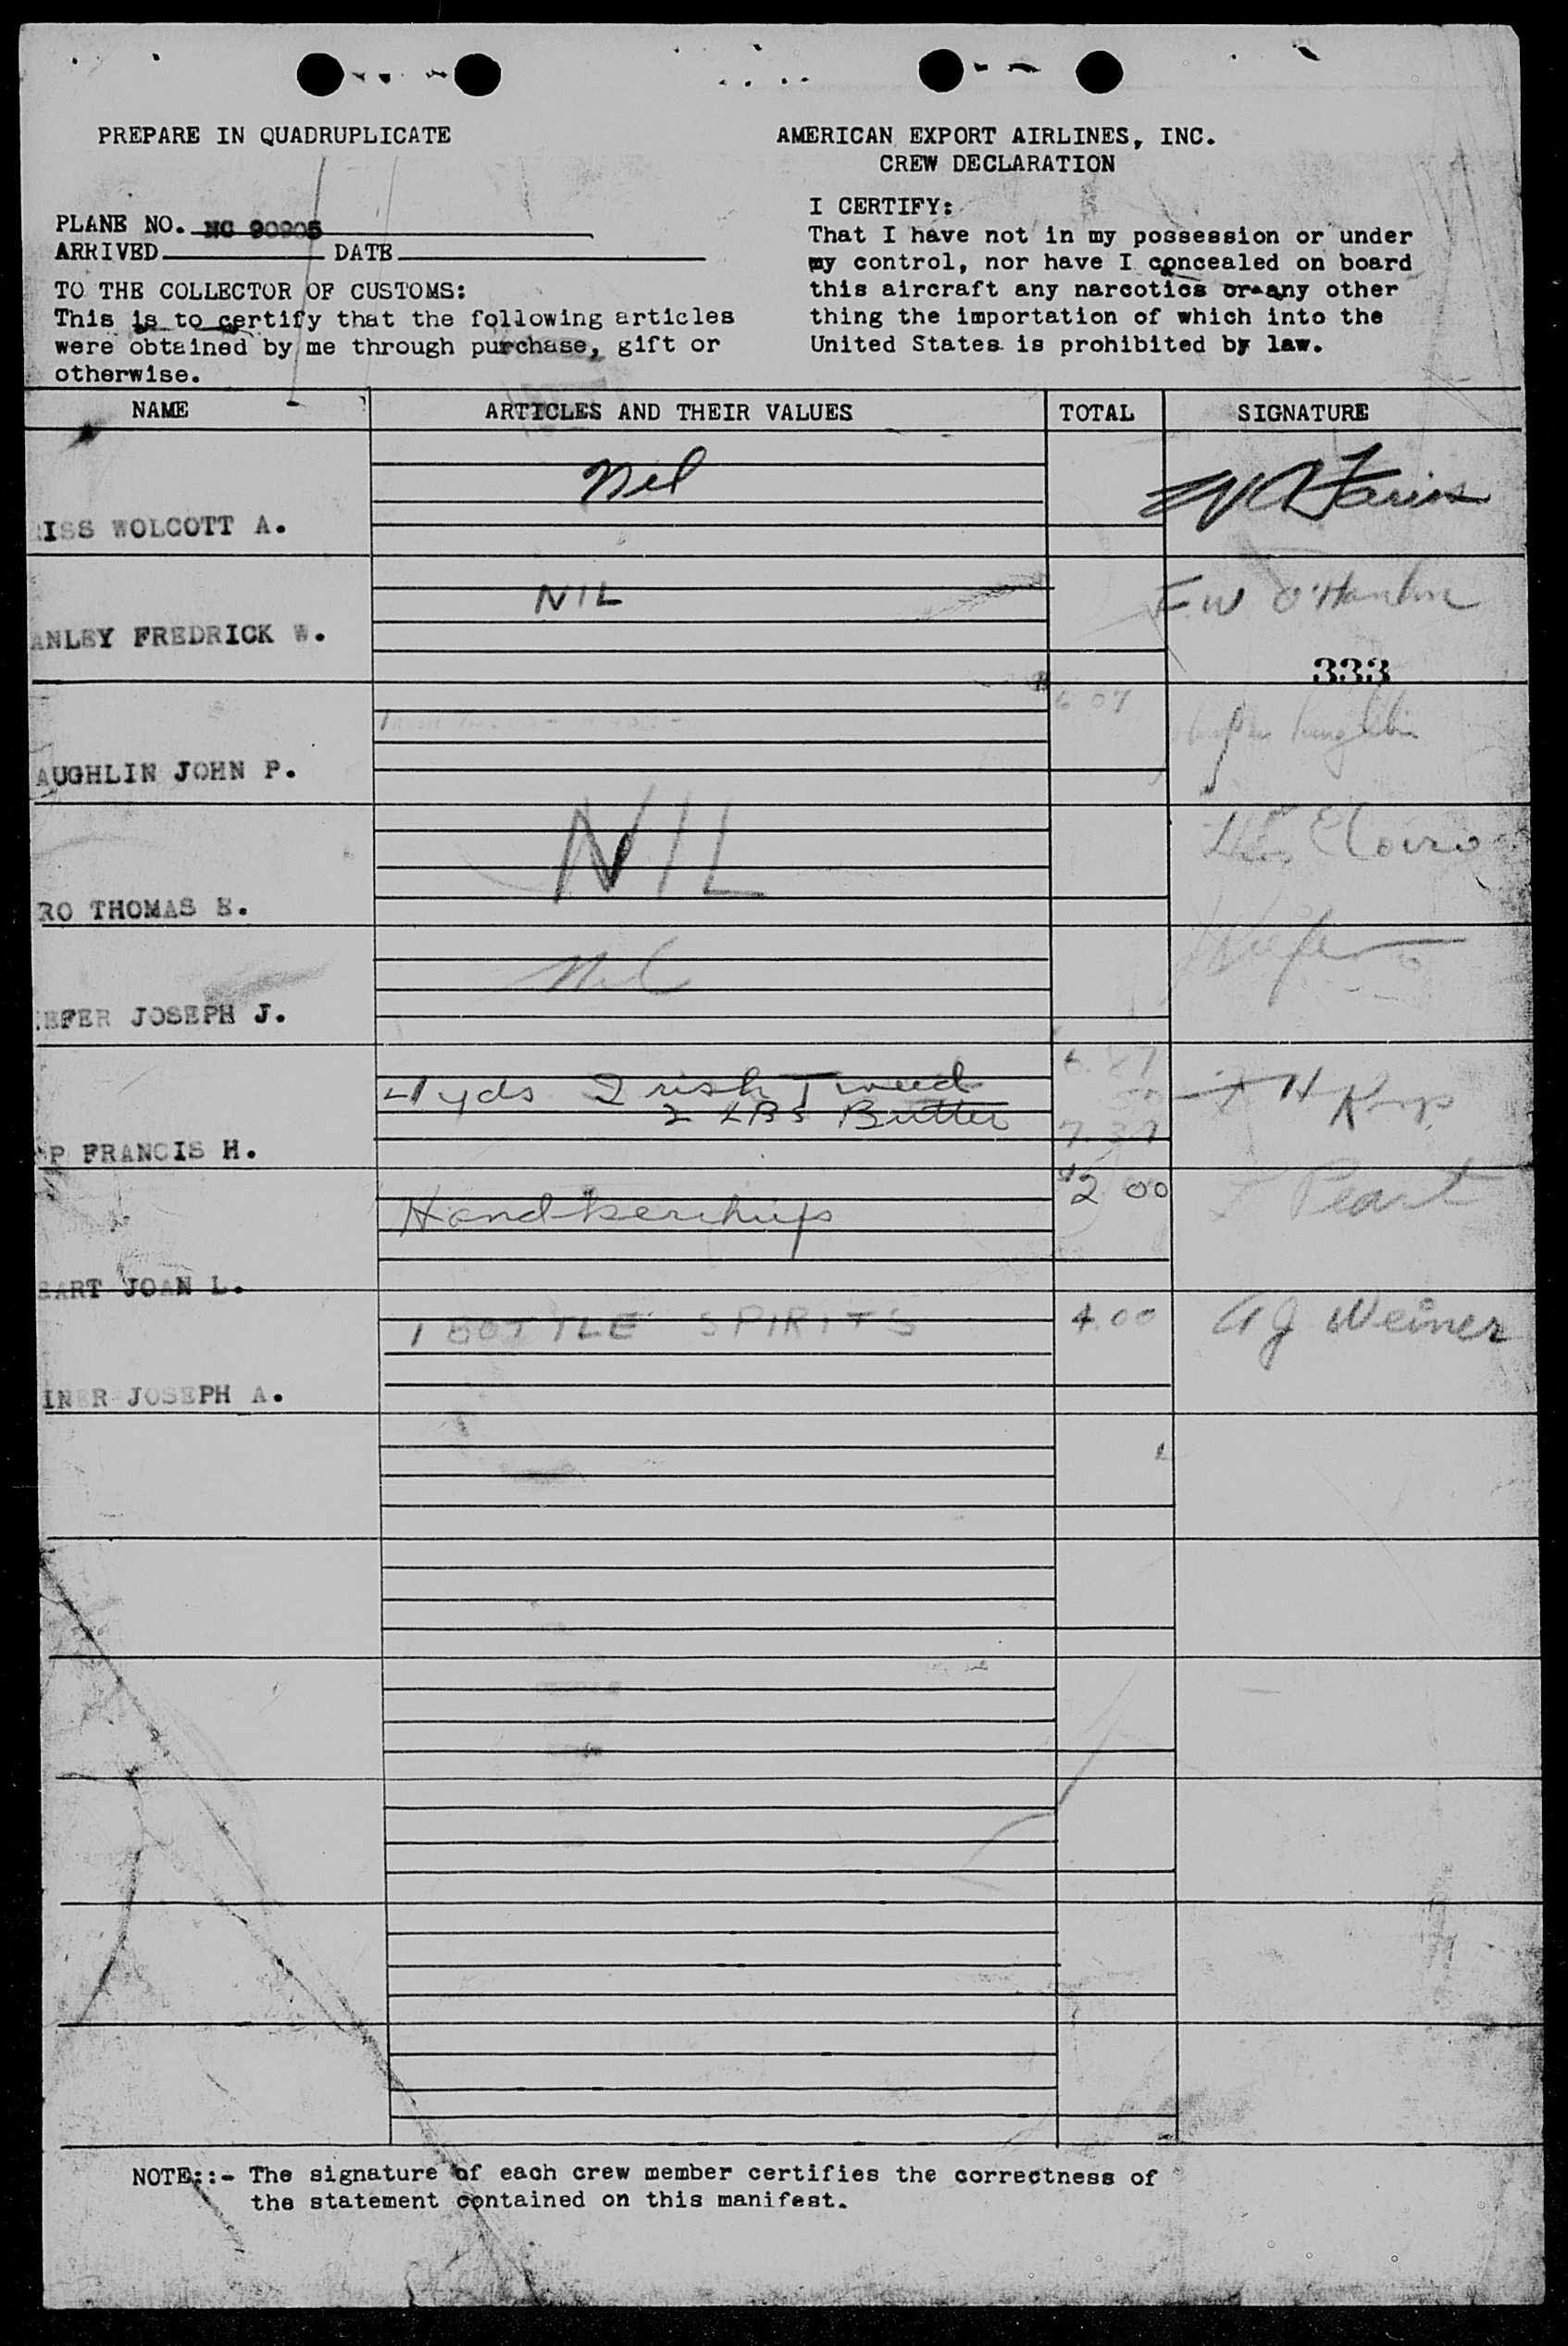 PREPARE IN QUADRUPLICATE
AMERICAN EXPORT AIRLINES, INC.
CREW DECLARATION
PLANE NO. NC 90905
ARRIVED DATE
TO THE COLLECTOR OF CUSTOMS:
This is to certify that the following articles
were obtained by me through purchase, gift or
otherwise.
I CERTIFY:
That I have not in my possession or under
my control, nor have I concealed on board
this aircraft any narcotics or any other
thing the importation of which into the
United States is prohibited by law.
NAME ARTICLES AND THEIR VALUES TOTAL SIGNATURE
Nil
ISS WOLCOTT A.
NIL F W O'Hanlon
ANLEY FREDRICK W.
333
6 07
AUGHLIN JOHN P.
NIL
RO THOMAS E.
Nil
EFER JOSEPH J.
4 yds Irish Tweed 6.87
2 LBS Butter 50
7.37
F H Kemp
P FRANCIS H.
Handkerchiefs $2 00 Peart
EART JOAN L.
1 BOTTLE SPIRITS 4.00 A J Weiner
INER JOSEPH A.
NOTE::- The signature of each crew member certifies the correctness of
the statement contained on this manifest.